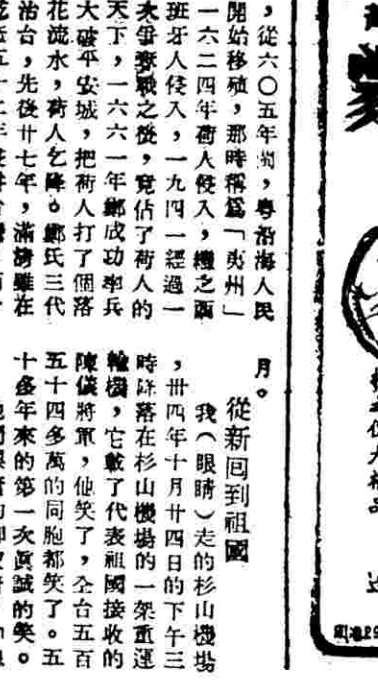 ，從六〇五年閩，粵沿海人民
開始移殖，那時稱爲「夷州」
一六二四年荷人侵入，機之西
班牙人侵入，一九四一經過一
次爭奪戰之後，竟佔了荷人的
天下，一六六一年鄭成功率兵
大破平安城，把荷人打了個落
花流水，荷人乞降。鄭氏三代
治台，先後廿七年，滿淸雖在
月。
從新回到祖國
我（眼睛）走的杉山機場
，卅四年十月廿四日的下午三
時降落在杉山機場的一架重運
輸機，它載了代表祖國接收的
陳儀將軍，他笑了，全台五百
五十四多萬的同胞都笑了。五
十多年來的第一次眞誠的笑。